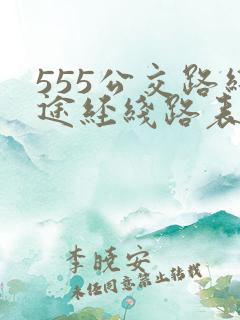 555公交路线
途经线路表
李晓安
未经同意禁止转载